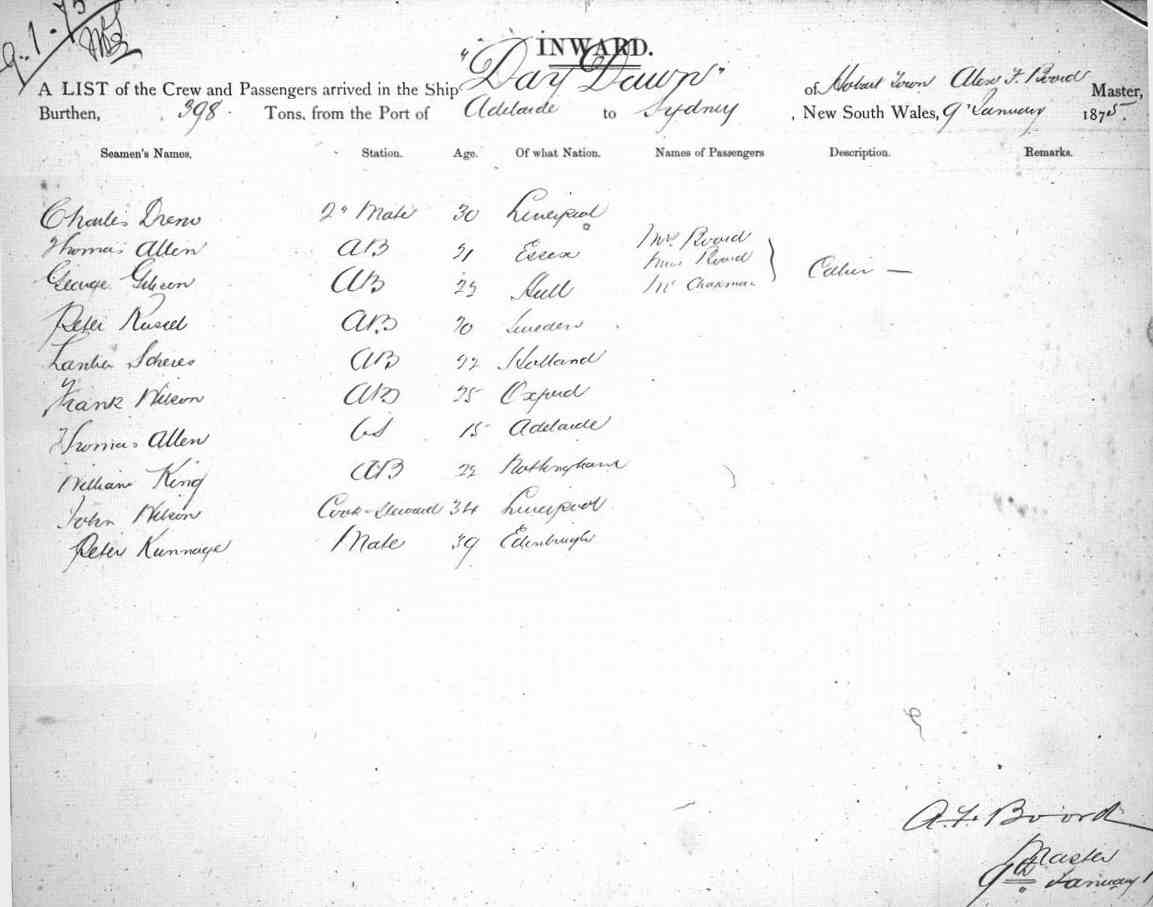 9-1-75
INWARD.
A LIST of the Crew and Passengers arrived in the Ship "Day Dawn" of Hobart Town Alex F. Boord Master,
Burthen, 398 Tons, from the Port of Adelaide to Sydney, New South Wales, 9 January 1875.
Seamen's Names. Station. Age. Of what Nation. Names of Passengers Description. Remarks.
Charles Drew 2d Mate 30 Liverpool
Thomas Allen AB 21 Essex Mrs Boord
George Gibson AB 23 Hull Miss Boord
Mr Chapman Cabin —
Peter AB 20 Sweden
AB 22 Holland
Frank Wilson AB 25 Oxford
Thomas Allen OS 15 Adelaide
William King AB 22 Nottingham
John Wilson Cook-Steward 34 Liverpool
Peter Kunnage Mate 39 Edinburgh
A. F. Boord
Master
9th January 1